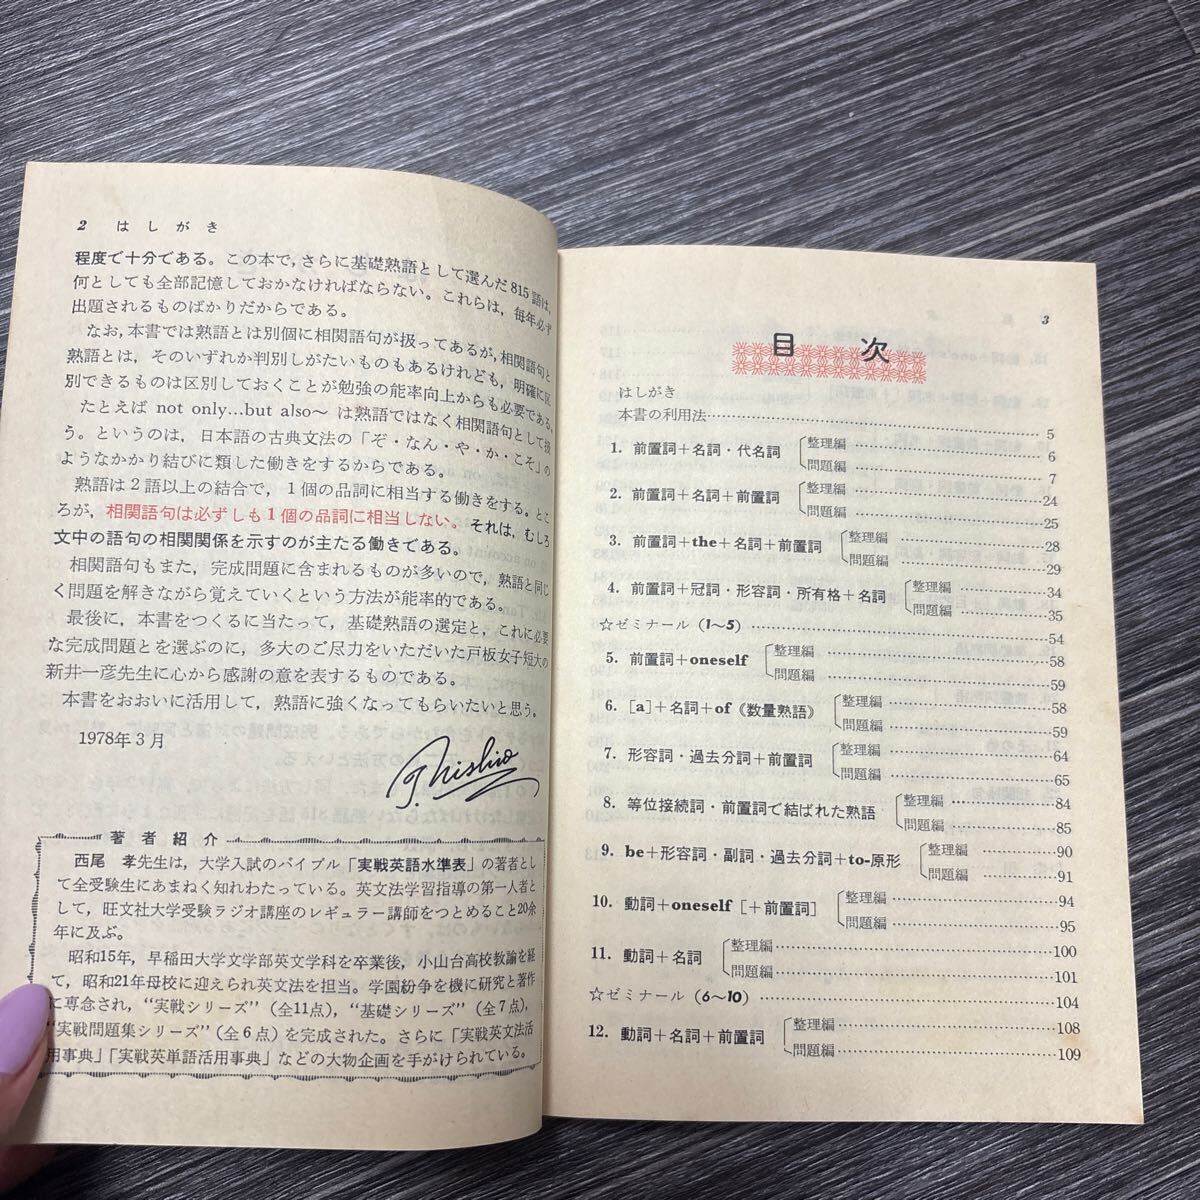 2 はしがき
程度で十分である。この本で，さらに基礎熟語として選んだ815語は，
何としても全部記憶しておかなければならない。これらは，毎年必ず
出題されるものばかりだからである。
なお，本書では熟語とは別個に相関語句が扱ってあるが，相関語句と
熟語とは，そのいずれか判別しがたいものもあるけれども，明確に区
別できるものは区別しておくことが勉強の能率向上からも必要である。
たとえば not only…but also～ は熟語ではなく相関語句として扱
う。というのは，日本語の古典文法の「ぞ・なん・や・か・こそ」の
ようなかかり結びに類した働きをするからである。
熟語は2語以上の結合で，1個の品詞に相当する働きをする。とこ
ろが，相関語句は必ずしも1個の品詞に相当しない。それは，むしろ
文中の語句の相関関係を示すのが主たる働きである。
相関語句もまた，完成問題に含まれるものが多いので，熟語と同じ
く問題を解きながら覚えていくという方法が能率的である。
最後に，本書をつくるに当たって，基礎熟語の選定と，これに必要
な完成問題とを選ぶのに，多大のご尽力をいただいた戸板女子短大の
新井一彦先生に心から感謝の意を表するものである。
本書をおおいに活用して，熟語に強くなってもらいたいと思う。
1978年3月
T. Nishio
著者紹介
西尾 孝先生は，大学入試のバイブル「実戦英語水準表」の著者とし
て全受験生にあまねく知れわたっている。英文法学習指導の第一人者と
して，旺文社大学受験ラジオ講座のレギュラー講師をつとめること20余
年に及ぶ。
昭和15年，早稲田大学文学部英文学科を卒業後，小山台高校教諭を経
て，昭和21年母校に迎えられ英文法を担当。学園紛争を機に研究と著作
に専念され，“実戦シリーズ”（全11点），“基礎シリーズ”（全7点），
“実戦問題集シリーズ”（全6点）を完成された。さらに「実戦英文法活
用事典」「実戦英単語活用事典」などの大物企画を手がけられている。
3
目次
はしがき
本書の利用法……5
1. 前置詞＋名詞・代名詞 整理編……6
問題編……7
2. 前置詞＋名詞＋前置詞 整理編……24
問題編……25
3. 前置詞＋the＋名詞＋前置詞 整理編……28
問題編……29
4. 前置詞＋冠詞・形容詞・所有格＋名詞 整理編……34
問題編……35
☆ゼミナール (1～5)……54
5. 前置詞＋oneself 整理編……58
問題編……59
6. [a]＋名詞＋of（数量熟語） 整理編……58
問題編……59
7. 形容詞・過去分詞＋前置詞 整理編……64
問題編……65
8. 等位接続詞・前置詞で結ばれた熟語 整理編……84
問題編……85
9. be＋形容詞・副詞・過去分詞＋to-原形 整理編……90
問題編……91
10. 動詞＋oneself［＋前置詞］ 整理編……94
問題編……95
11. 動詞＋名詞 整理編……100
問題編……101
☆ゼミナール (6～10)……104
12. 動詞＋名詞＋前置詞 整理編……108
問題編……109